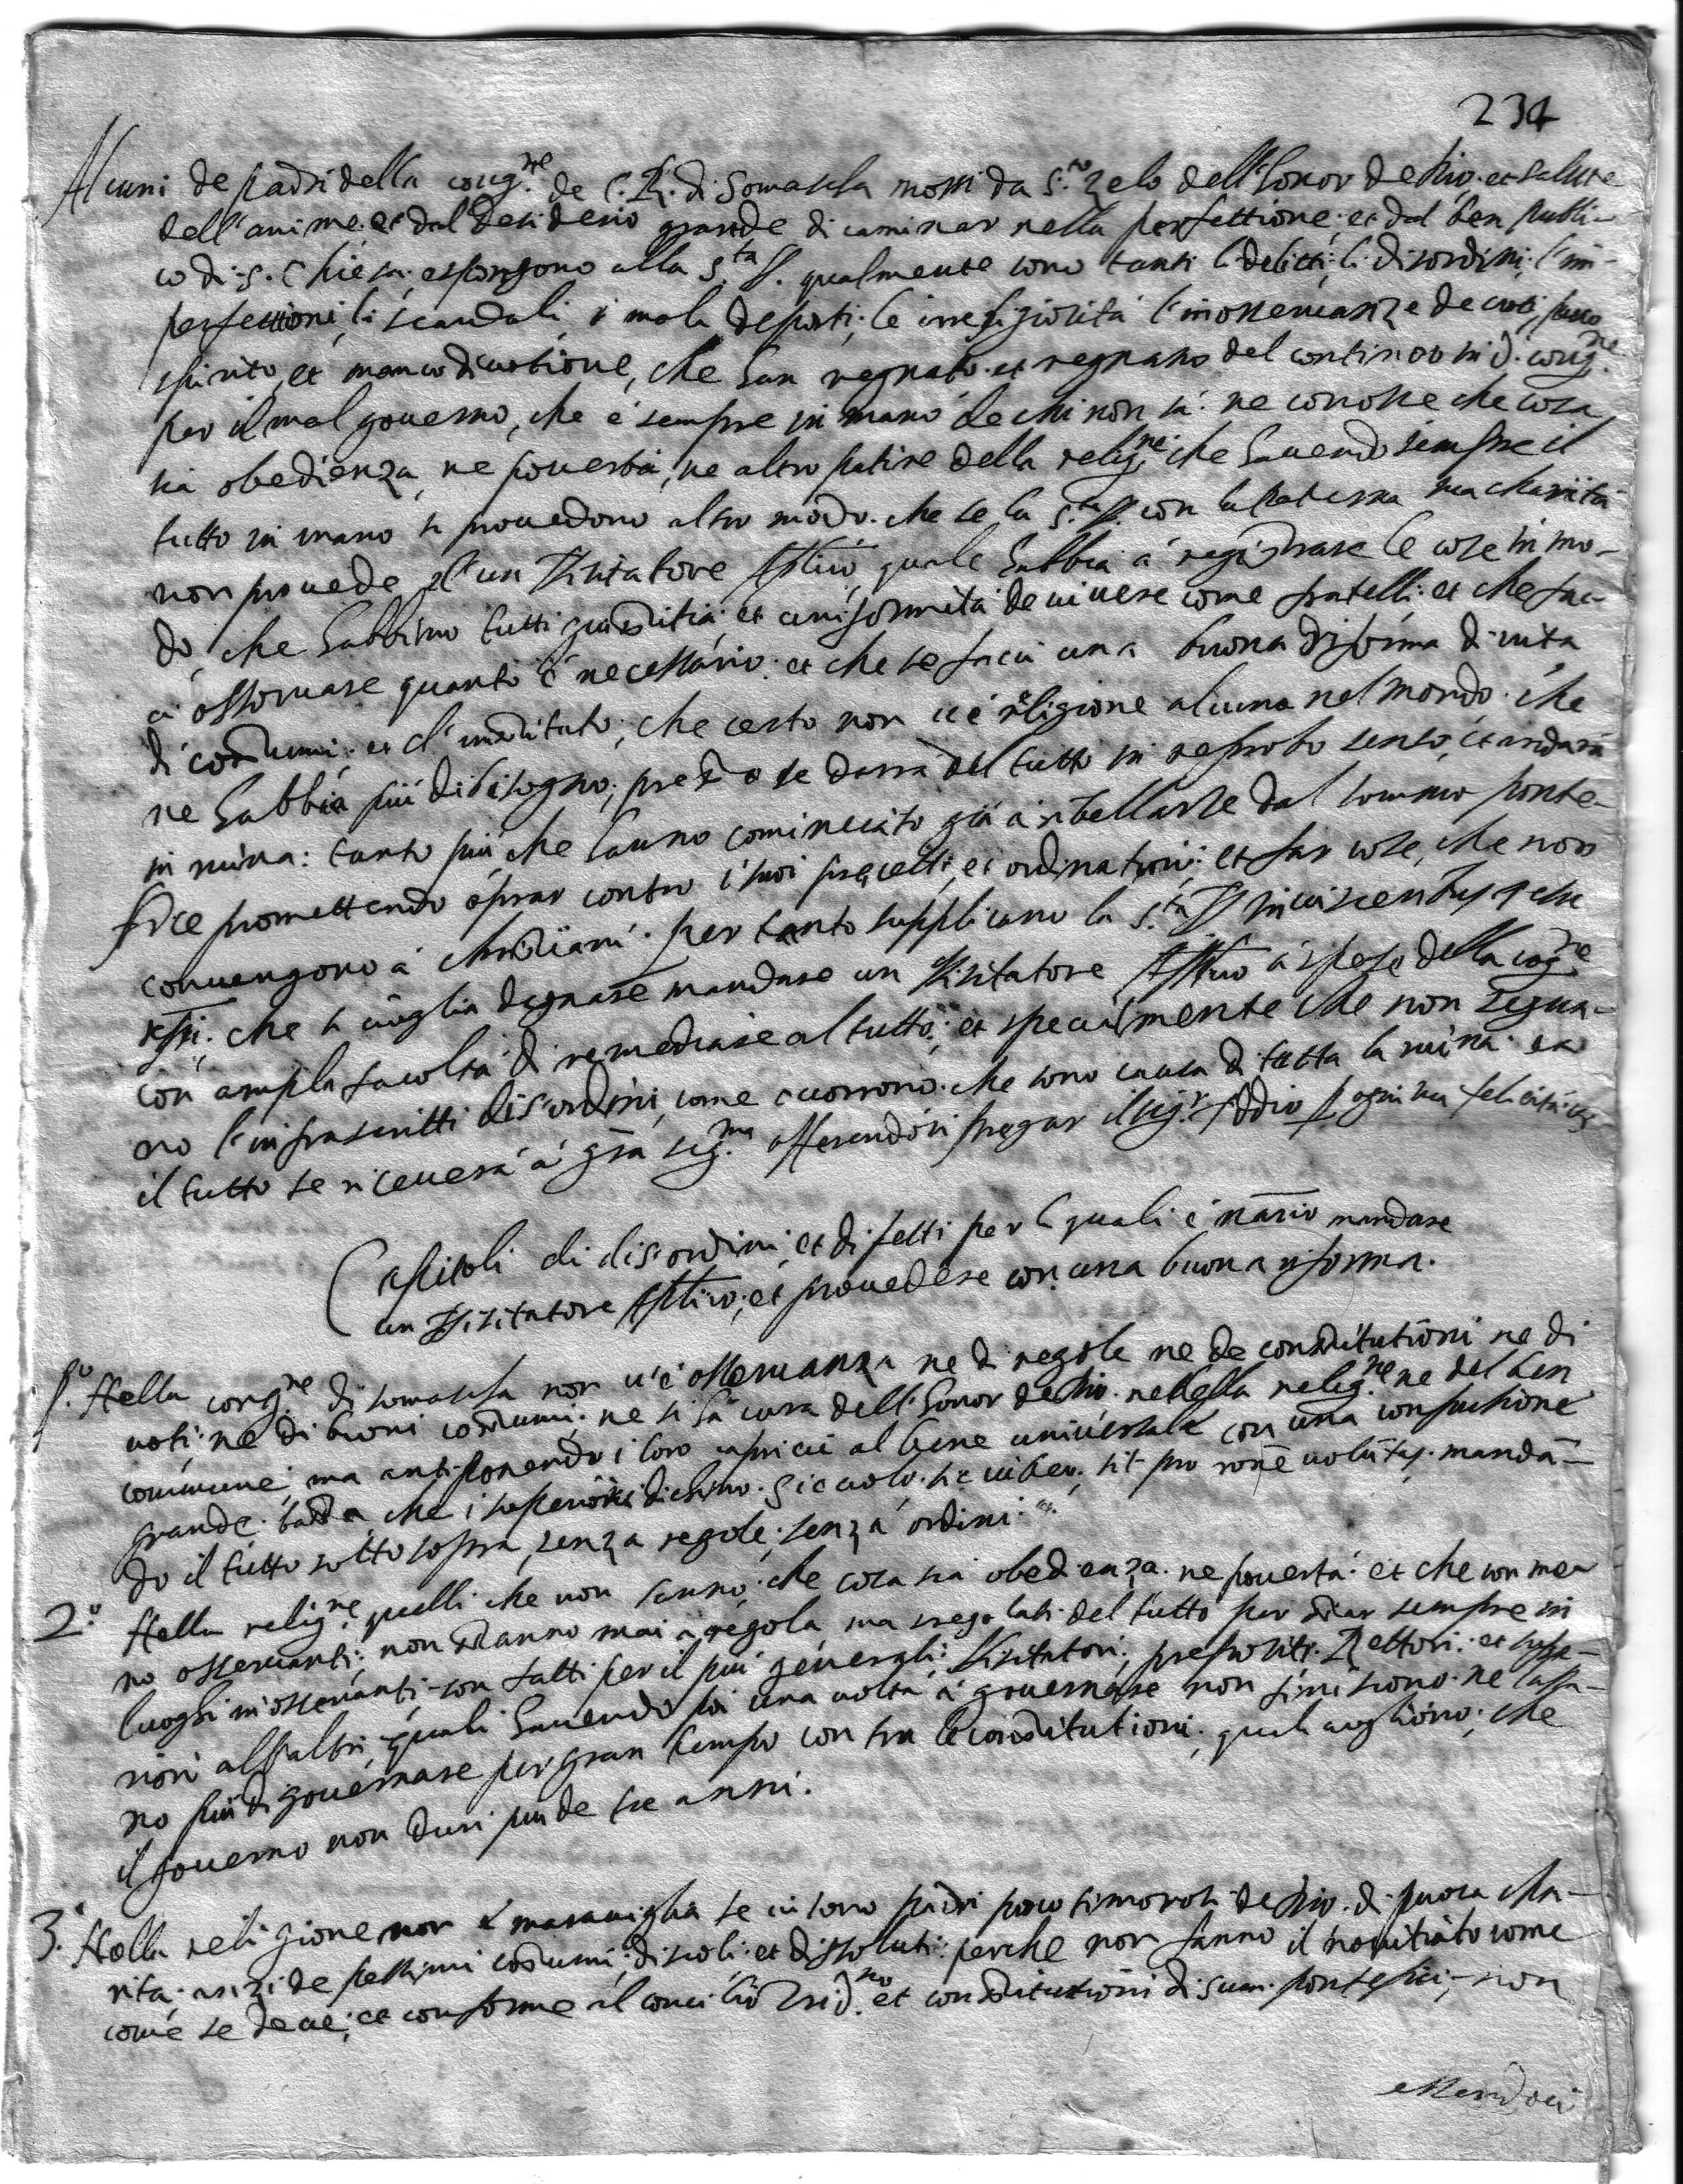 234
Alcuni de padri della cong.ne de C. R. di Somascha mossi da s.to zelo dell'honor de Dio. et salute
dell'anime. et dal desiderio grande di caminar nella perfettione; et dal ben publi-
co di s. Chiesa; espongono alla S.ta V. qualmente sono tanti li delitti: li disordini; l'im-
perfettioni, li scandali, i mali deporti; le irreligiosità l'inosservanze de voti, puoco
spirito, et manco divotione, che han regnato et regnano del continuo in d. cong.ne
per il mal governo, che è sempre in mano de chi non sà. ne conosse che cosa
sia obedienza, ne povertà, ne altro patire della relig.ne che havendo sempre il
tutto in mano si provedono altro modo. che se la S.tà V. con la paterna sua charità
non provede d'un Visitatore Ap̃lico, quale habbia à registrare le cose in mo-
do, che habbino tutti giustitia et uniformità de vivere come fratelli: et che fac-
ci osservare quanto è necessario. et che se facci una buona riforma di vita
di costumi: et d'instituto; che certo non v'è religione alcuna nel mondo. che
ne habbia più di bisogno; presto se darrà del tutto in reprobo senso, et andarà
in ruina: tanto più che hanno cominciato già à ribellarse dal sommo ponte-
fice promettendo oprar contro i suoi precetti, et ordinationi; et far cose, che non
convengono à christiani. per tanto supplicano la S.ta V. in visceribus
xp̃i. che si voglia degnare mandare un Visitatore Ap̃lico à spese della cog.ne
con ampla facoltà di remediare al tutto; et specialmente che non segua-
no l'infrascritti disordini, come occorrono. che sono causa di tutta la ruina. et
il tutto se riceverà à gr̃a sig.ma offerendosi pregar il sig.r Iddio p ogni sua felicità.
Capitoli di disordini, et difetti per li quali è nc̃ario mandare
un Visitatore Ap̃lico; et provedere con una buona riforma.
P.o Nella cong.ne di somascha non v'è osservanza ne di regole ne de constitutioni ne di
voti; ne di buoni costumi; ne si hà cura dell'honor de Dio. ne della relig.ne ne del ben
commune; ma antiponendo i loro caprici al bene universale con una confusione
grande. basta che i superiori dichino. Sic volo. sic iubeo; sit pro rõne volũtas. mandã-
do il tutto sotto sopra, senza regole, senza ordini.
2.o Nella relig.ne quelli che non sanno; che cosa sia obedienza. ne povertà. et che son me-
no osservanti; non stanno mai à regola, ma sregolati del tutto per star sempre in
luoghi inosservanti, son fatti per il più generali; Visitatori; prepositi. Rettori; et supe-
riori all'altri, quali havendo poi una volta à governare non finiscono. ne lassa-
no più di governare per gran tempo contra le constitutioni. quali vogliono; che
il governo non duri più de tre anni.
3. Nella religione non è maraviglia se vi sono padri poco timorosi de Dio. di puoca cha-
rità. anzi de pessimi costumi; discoli; et dissoluti: perche non fanno il novitiato come
come se deve; et conforme il concilio Trid.no et constitutioni di sum. pontefici, non